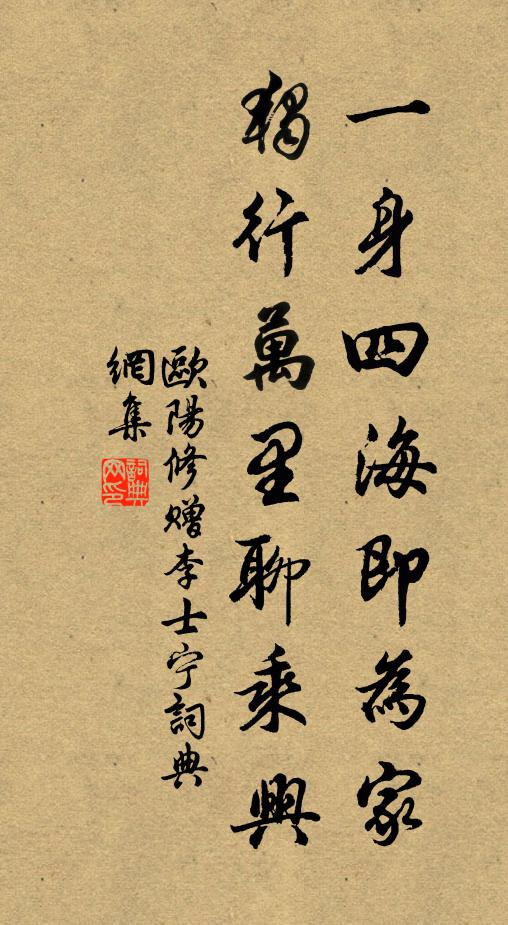 一身四海即為家
獨行萬里聊乘興
歐陽修贈李士宁詞典
網集
詞典
网印